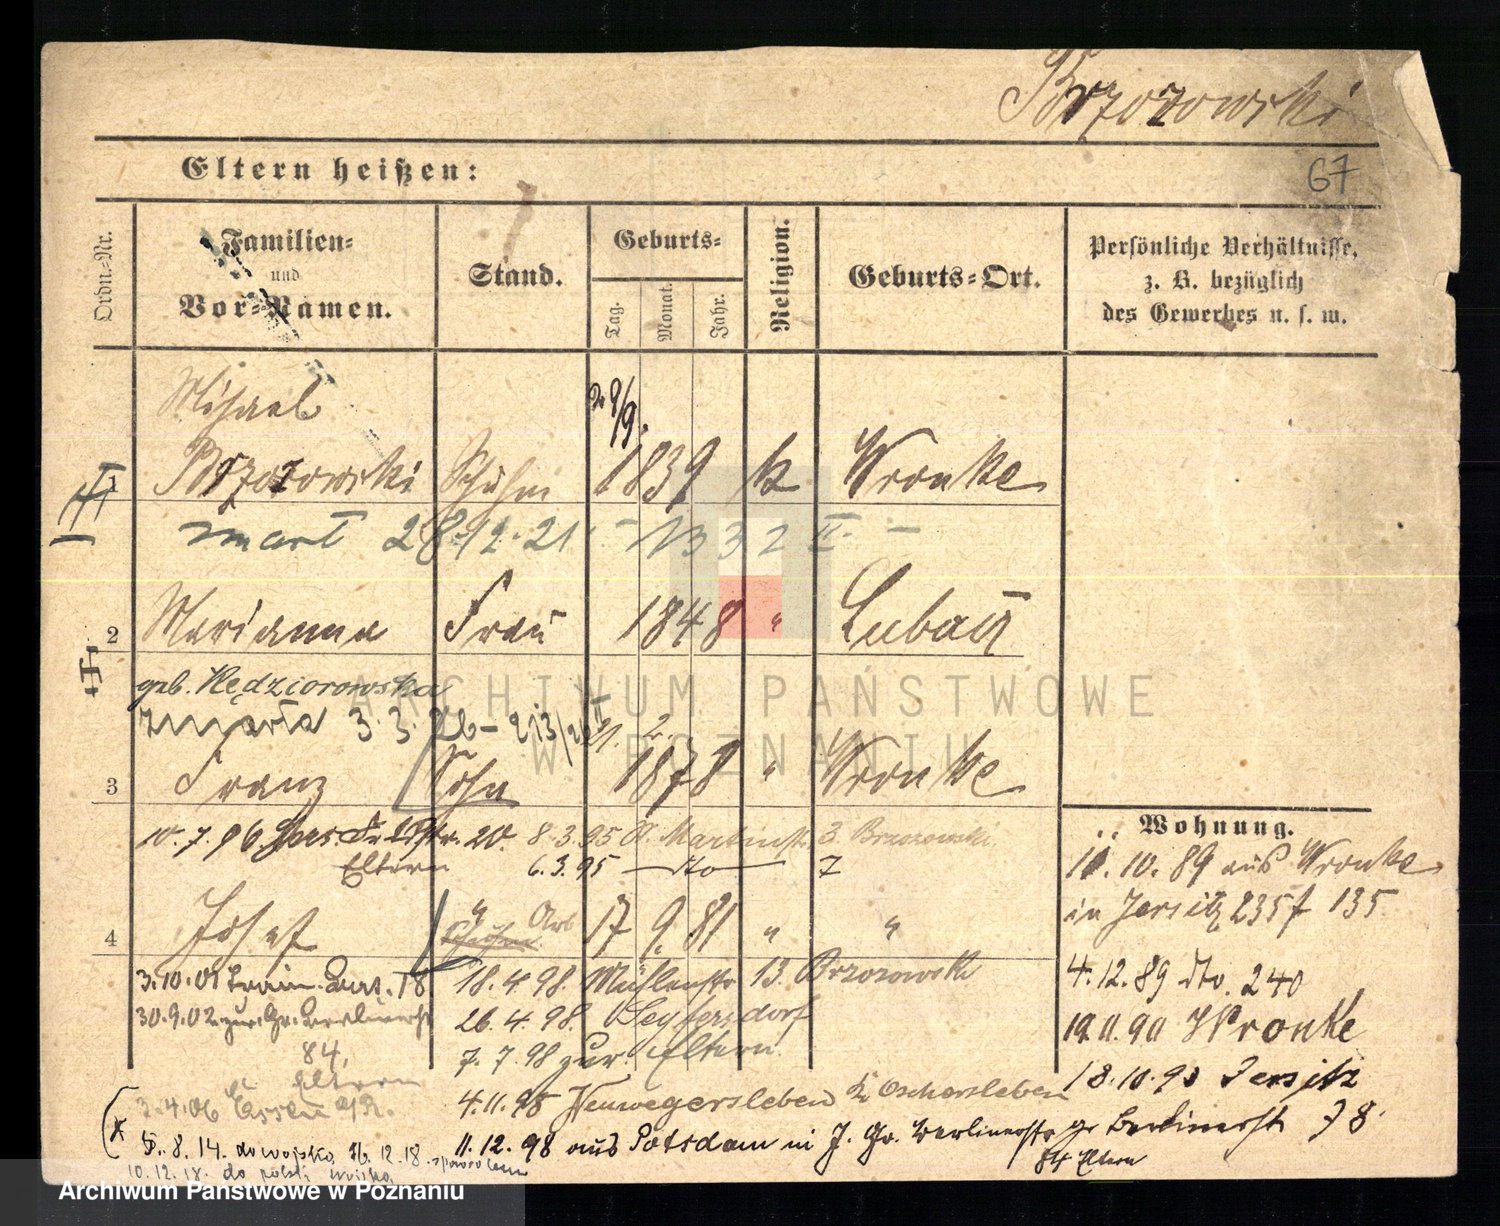 Brzozowski
67
Eltern heißen:
Ordn.-Nr.
Familien-
und
Vor-Namen.
Stand.
Geburts-
Tag.
Monat.
Jahr.
Religion.
Geburts-Ort.
Persönliche Verhältnisse,
z. B. bezüglich
des Gewerbes u. s. w.
Mihael
1 Brzozowski 1839 k Wronke
zmarł 28.12.21 - 1332 II. -
2 Marianna Frau 1848 " Lubasz
geb. Kędziorowska
zmarła 3.3.26 -
21. 2.
3 Franz Sohn 1878 " Wronke
10.7.96. 20. 8.3.95 St. Martinstr. 3 Brzozowski
Eltern 6.3.95 — dto — 7
4 Josef " Arb 17 9. 81 " "
3.10.01 Train. Bat. 18.4.98. Mühlenstr 13. Brzozowski
30.9.02. zur. Gr. Berlinerstr 26.4.98. Seyfersdorf
84, 7.7.98 zur. Eltern
Eltern
3.4.06 Essen a/R. 4.11.98 Wenwegersleben Kr. Oschersleben
5.8.14. do wojska 16.12.18. 11.12.98 aus Potsdam in J. Gr. Berlinerstr gr Berlinerst 78
84 Eltern
10.12.18. do polsk. wojska
Wohnung.
11.10.89 aus Wronke
in Jersitz 235f 135
4.12.89 dto. 240
19.11.90 Wronke
18.10.93 Jersitz
ARCHIWUM PAŃSTWOWE
W POZNANIU
Archiwum Państwowe w Poznaniu